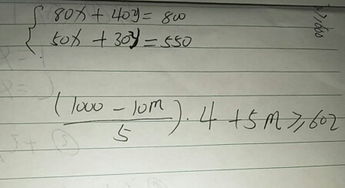 { 80x + 40y = 800
50x + 30y = 550
(1000 - 10m / 5) · 4 + 5m ≥ 602